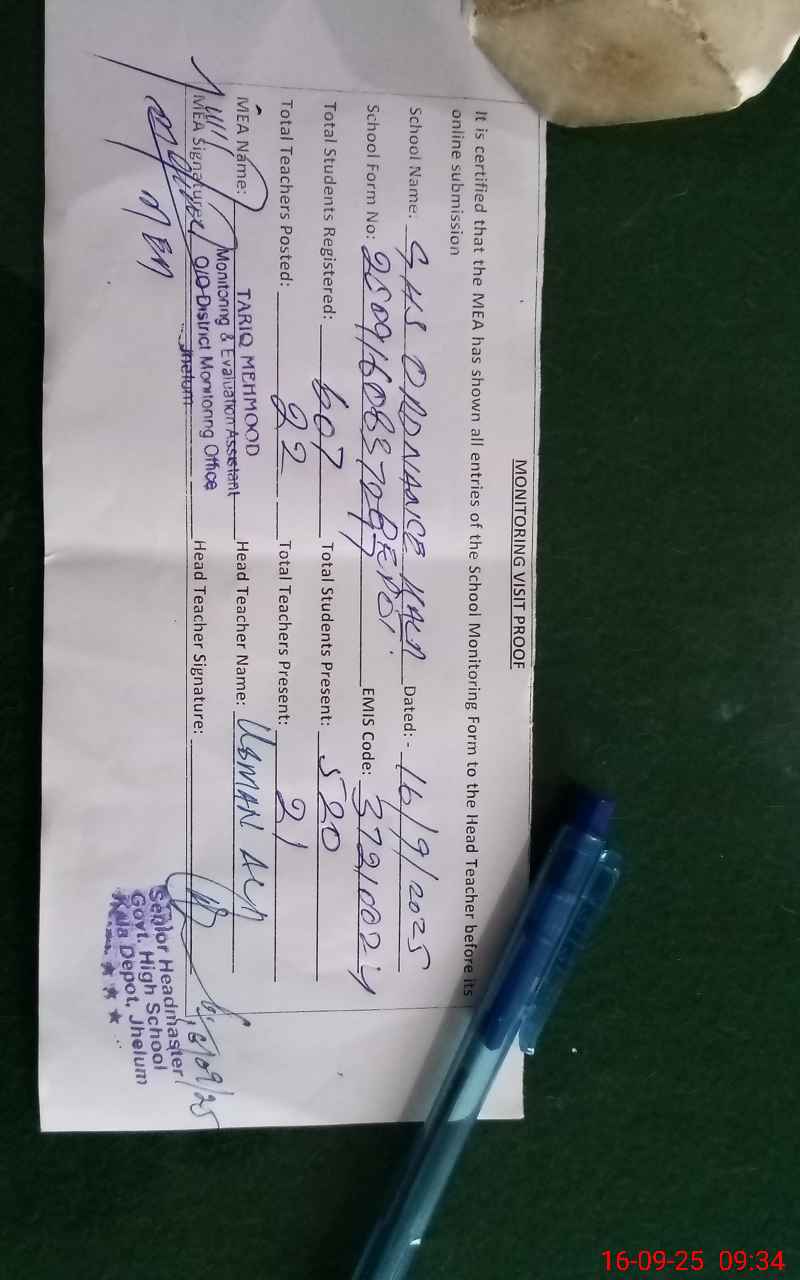 MONITORING VISIT PROOF
It is certified that the MEA has shown all entries of the School Monitoring Form to the Head Teacher before its
online submission
School Name: GHS ORDNANCE KALA Dated: - 16/9/2025
DEPOT.
School Form No: EMIS Code: 37210024
Total Students Registered: 607 Total Students Present: 520
Total Teachers Posted: 22 Total Teachers Present: 21
MEA Name: TARIQ MEHMOOD Head Teacher Name: USMAN ALI
Monitoring & Evaluation Assistant
MEA Signature: O/O District Monitoring Office Head Teacher Signature:
Jhelum
MEA
16/09/25
Senior Headmaster
Govt. High School
Kala Depot, Jhelum
16-09-25 09:34